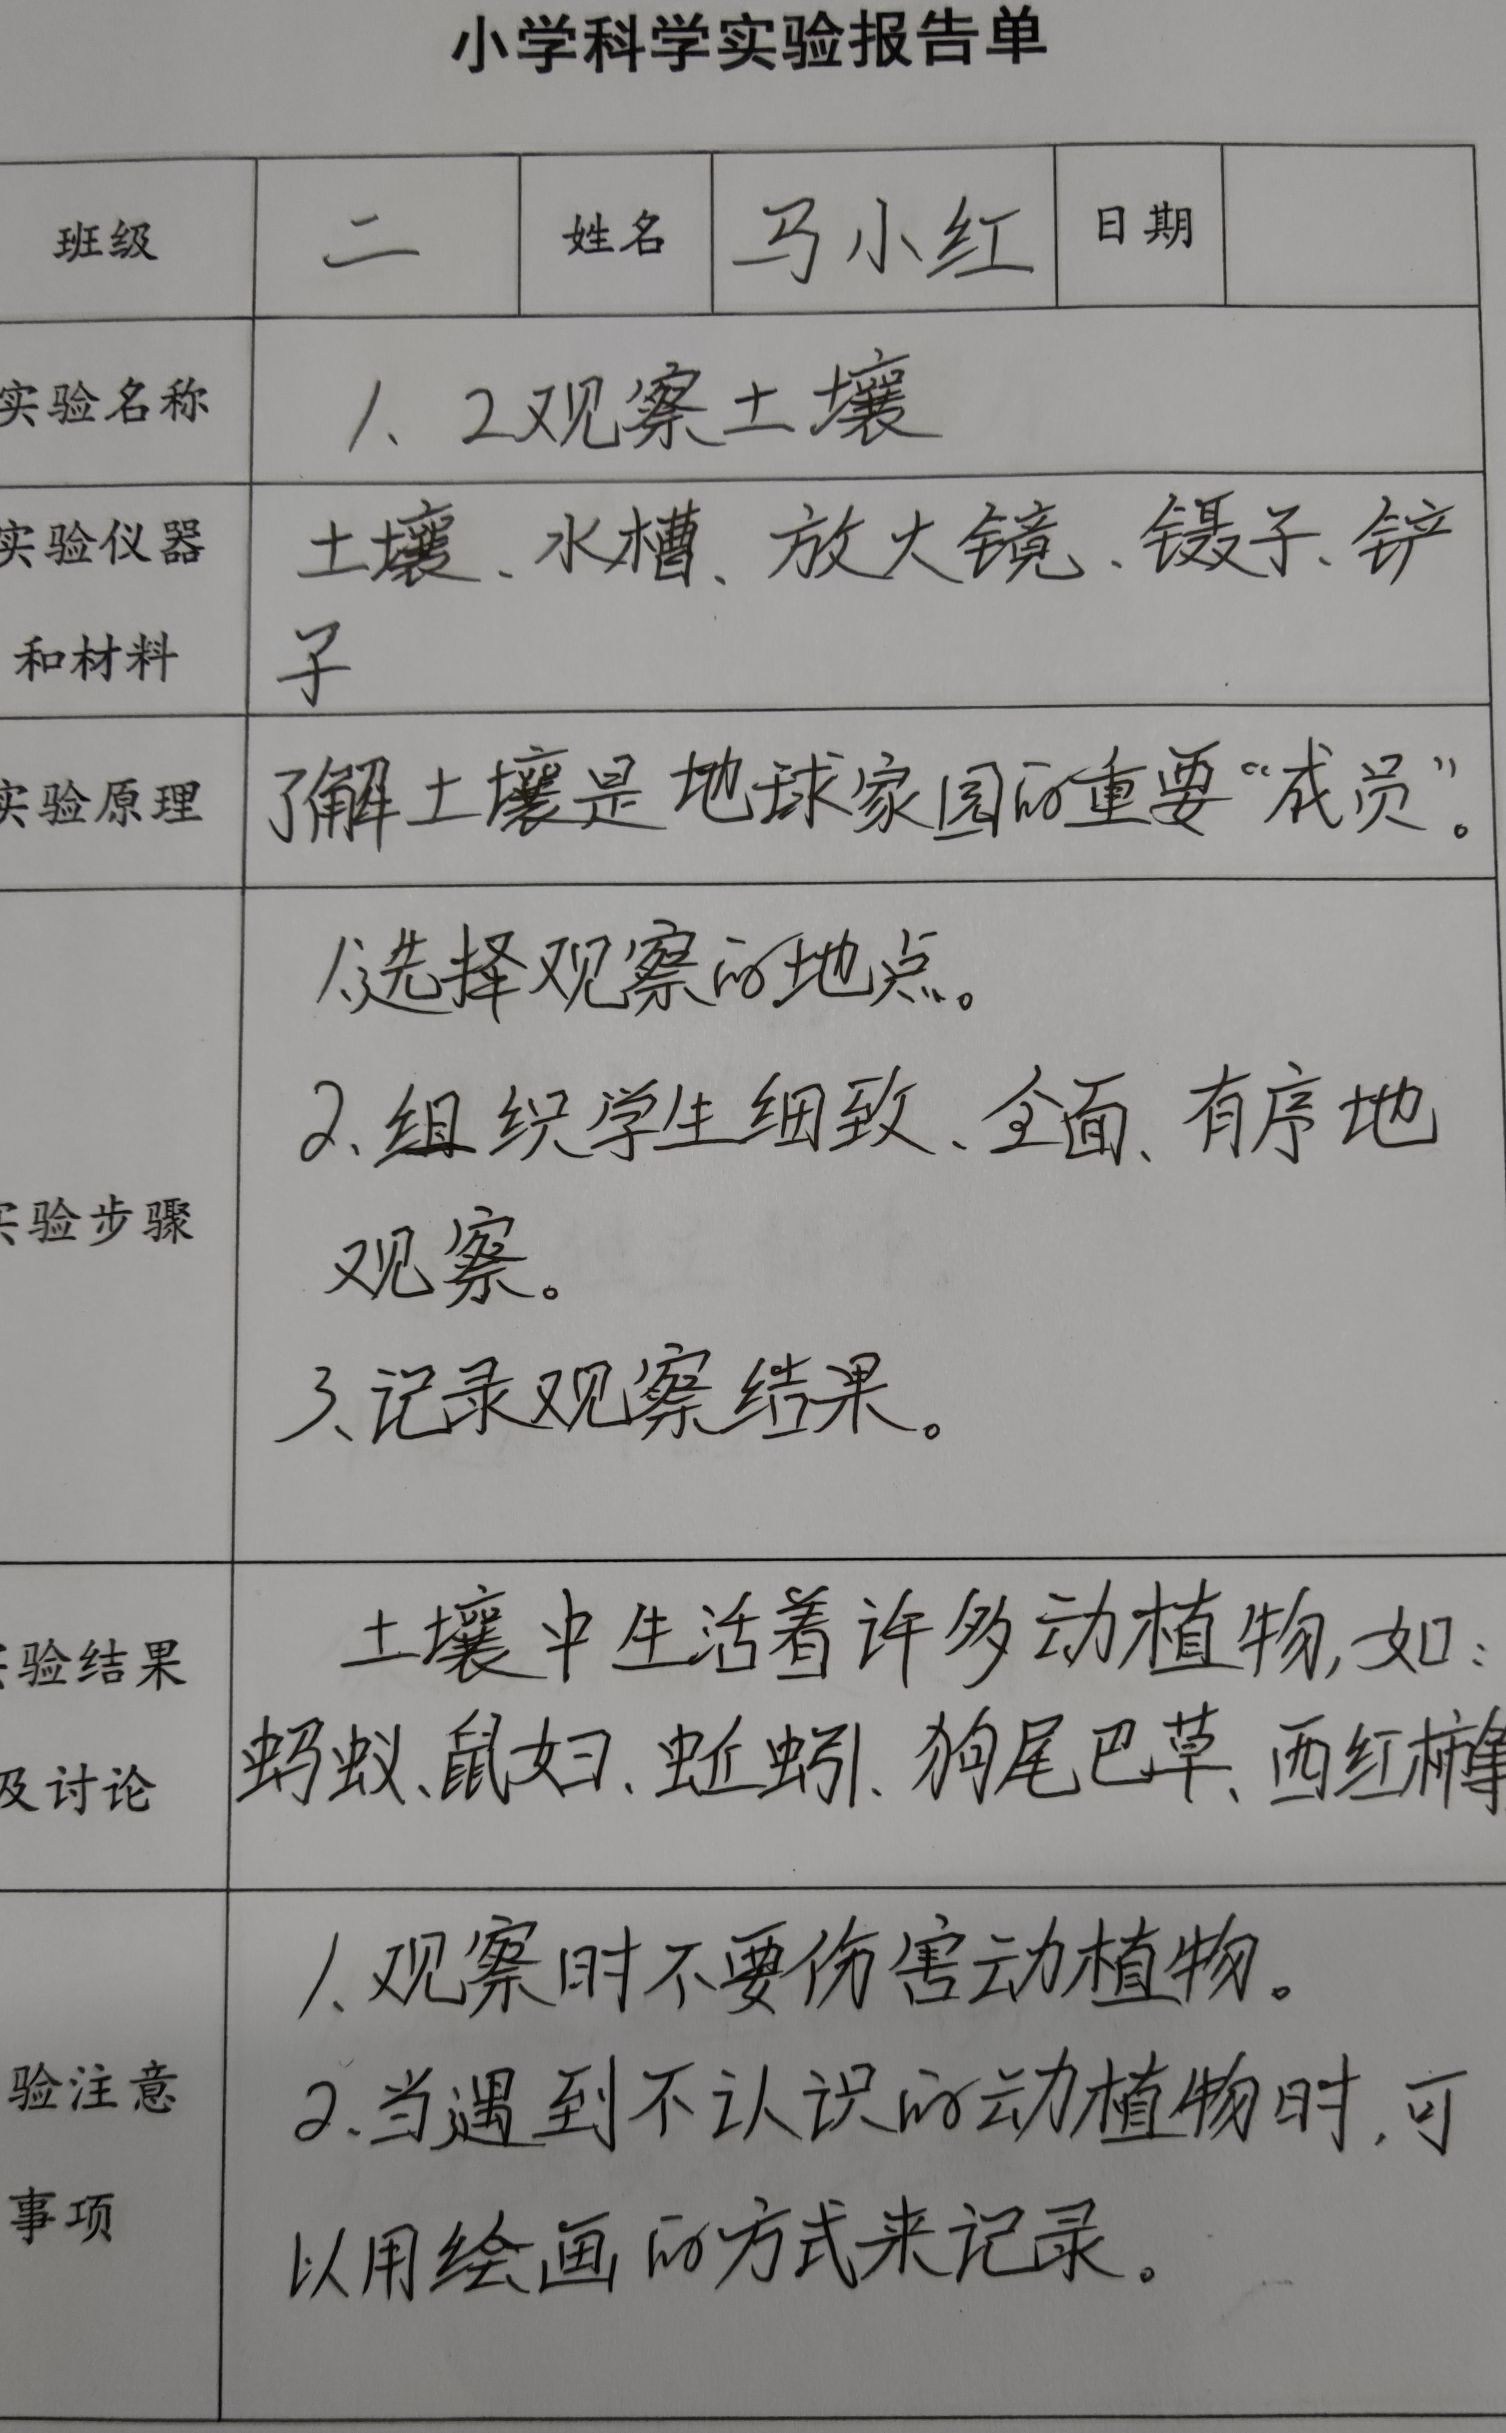 小学科学实验报告单
班级 二 姓名 马小红 日期
实验名称 1、2观察土壤
实验仪器 土壤、水槽、放大镜、镊子、铲
和材料 子
实验原理 了解土壤是地球家园的重要“成员”。
1、选择观察的地点。
2、组织学生细致、全面、有序地
实验步骤
观察。
3、记录观察结果。
土壤中生活着许多动植物,如:
实验结果
蚂蚁、鼠妇、蚯蚓、狗尾巴草、西红柿等
及讨论
1、观察时不要伤害动植物。
验注意 2、当遇到不认识的动植物时,可
事项 以用绘画的方式来记录。